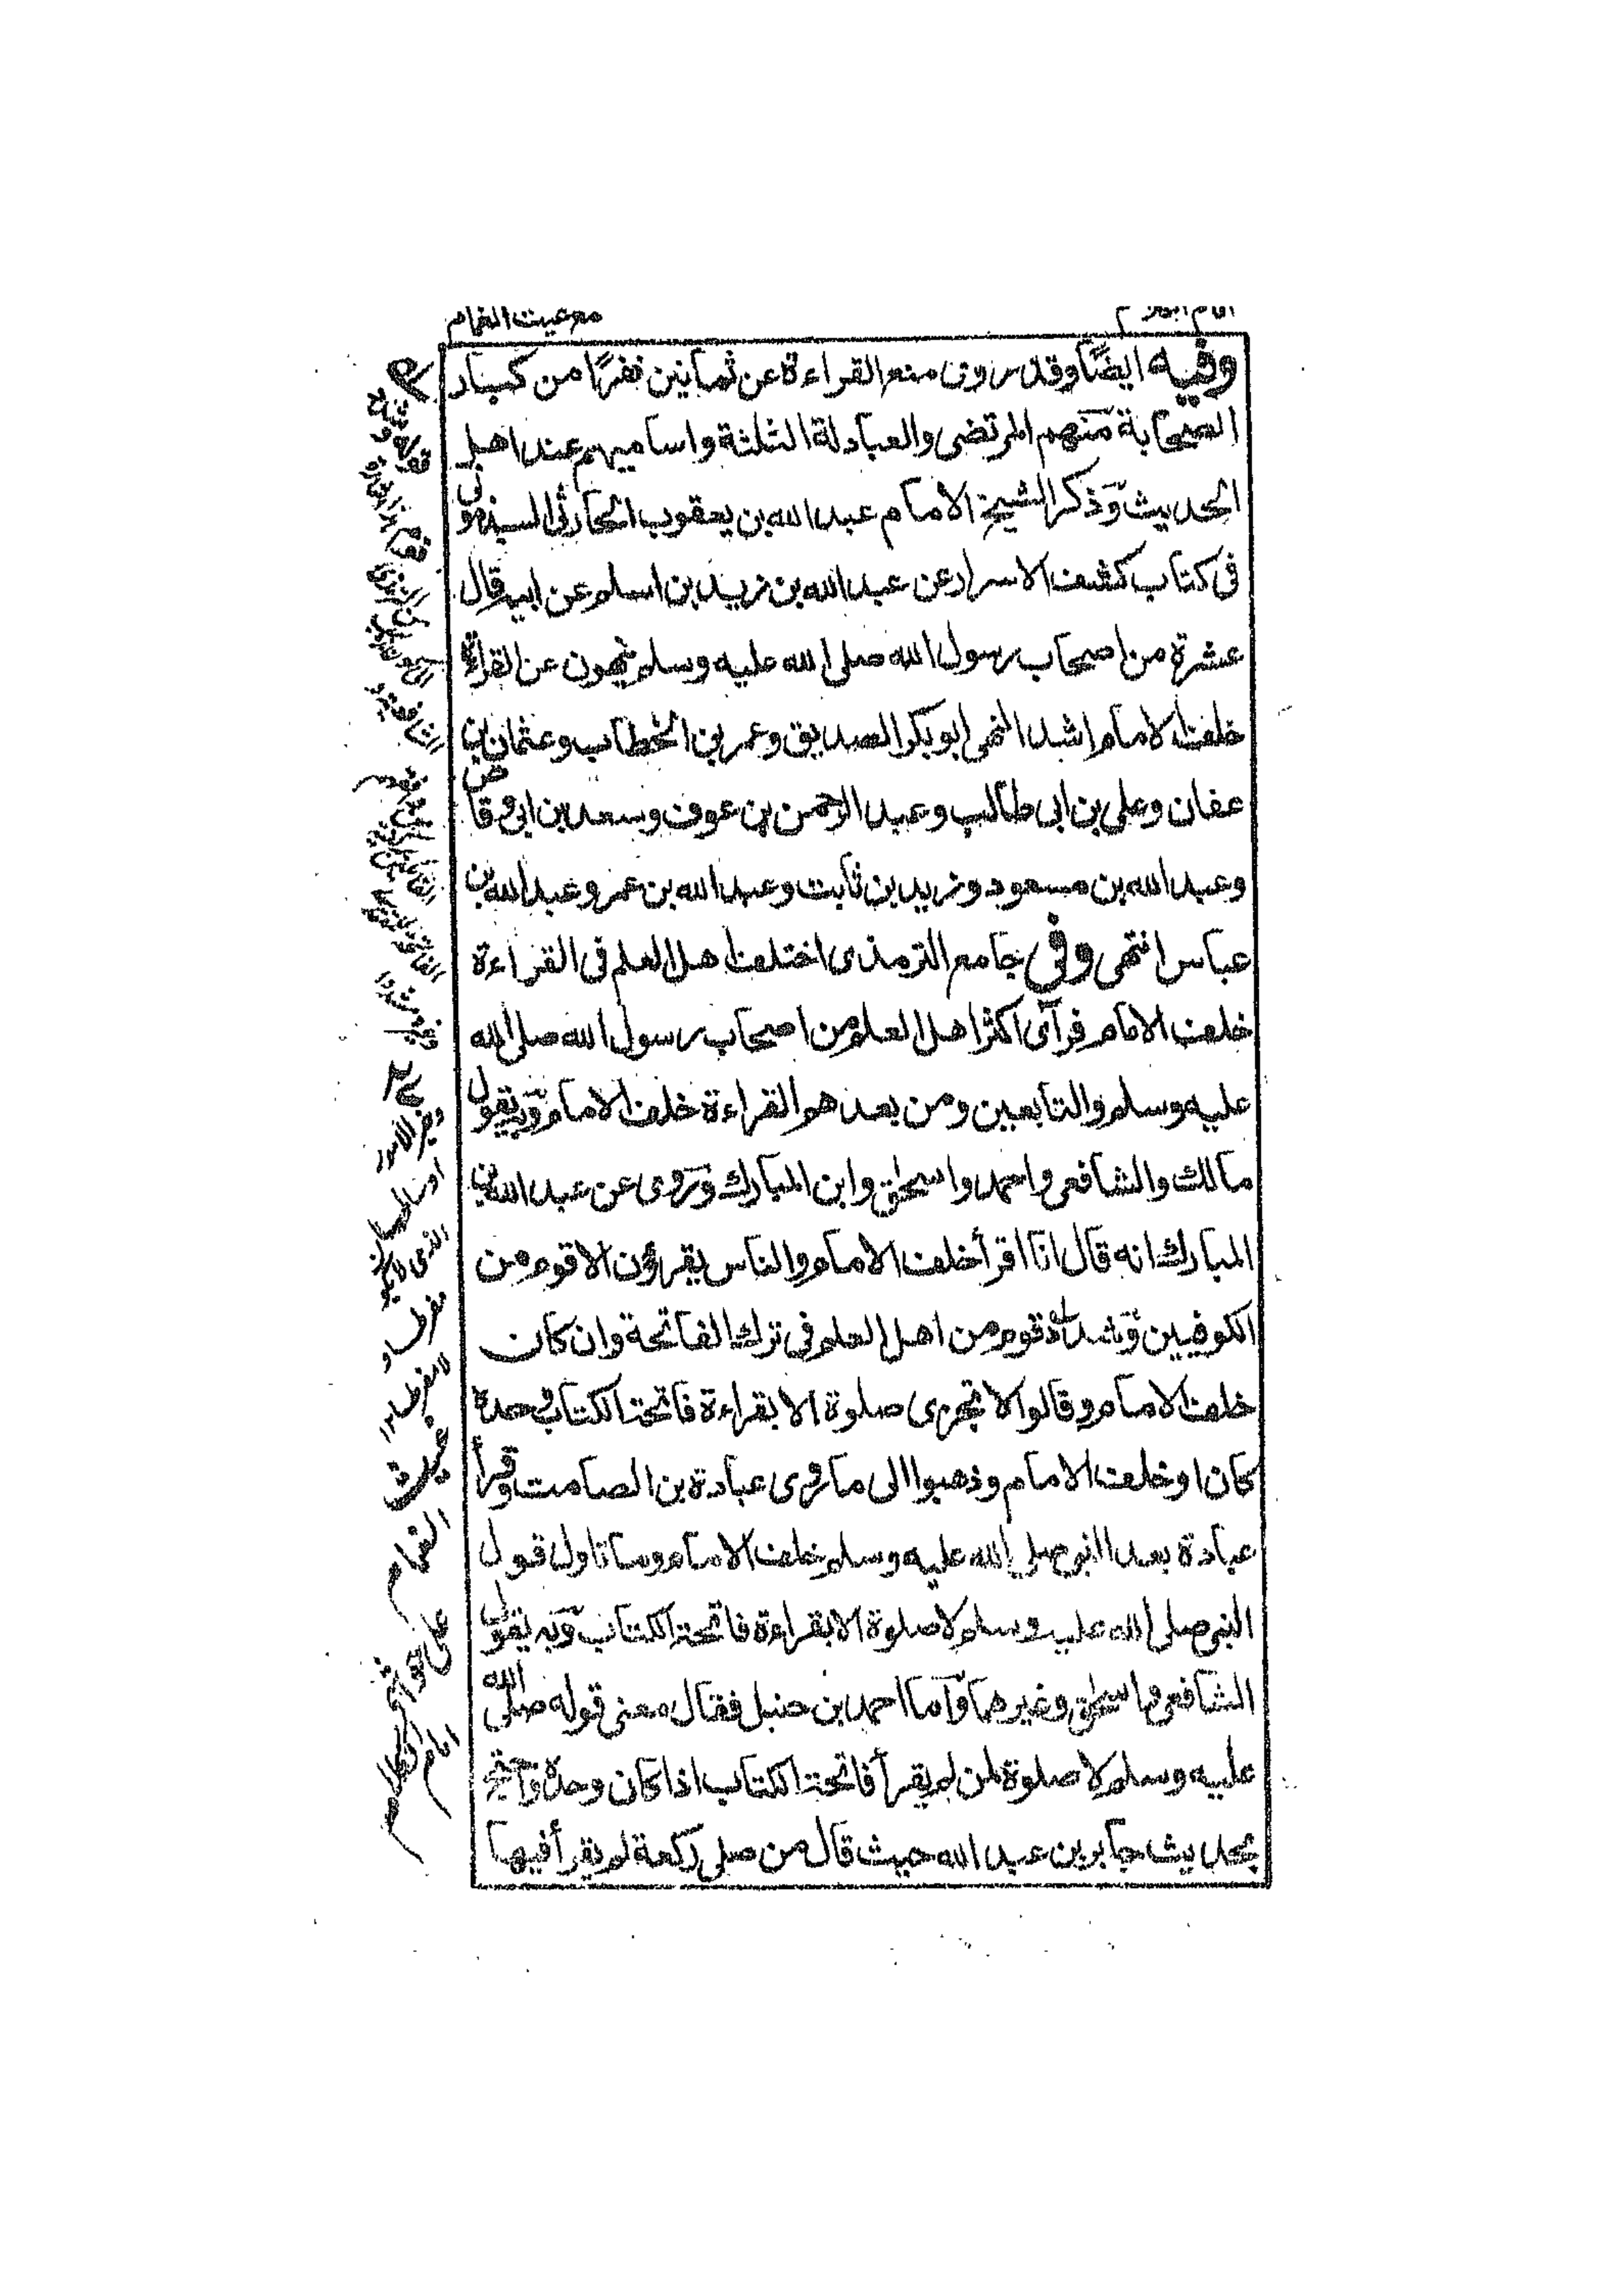 امام الكلام
مع غيث الغمام
وفيه ايضًا وقد روى منع القراءة عن ثمانين نفرًا من كبار
الصحابة منهم المرتضى والعبادلة الثلثة واساميهم عند اهل
الحديث وذكر الشيخ الامام عبد الله بن يعقوب الحارثى السبذمونى
فى كتاب كشف الاسرار عن عبد الله بن زيد بن اسلم عن ابيه قال
عشرة من اصحاب رسول الله صلى الله عليه وسلم ينهون عن القراءة
خلف الامام اشد النهى ابو بكر الصديق وعمر بن الخطاب وعثمان بن
عفان وعلى بن ابى طالب وعبد الرحمن بن عوف وسعد بن ابى وقاص
وعبد الله بن مسعود وزيد بن ثابت وعبد الله بن عمر وعبد الله بن
عباس انتهى وفى جامع الترمذى اختلف اهل العلم فى القراءة
خلف الامام فرآى اكثر اهل العلم من اصحاب رسول الله صلى الله
عليه وسلم والتابعين ومن بعدهم القراءة خلف الامام وبه يقول
مالك والشافعى واحمد واسحق وابن المبارك وروى عن عبد الله بن
المبارك انه قال انا اقرأ خلف الامام والناس يقرؤن الا قوم من
الكوفيين وشدد قوم من اهل العلم فى ترك الفاتحة وان كان
خلف الامام وقالوا لا تجزى صلوة الا بقراءة فاتحة الكتاب وحده
كان او خلف الامام وذهبوا الى ما روى عبادة بن الصامت وقرأ
عبادة بعد النبى صلى الله عليه وسلم خلف الامام وساتاول قول
النبى صلى الله عليه وسلم لا صلوة الا بقراءة فاتحة الكتاب وبه يقول
الشافعى واسحق وغيرهما واما احمد بن حنبل فقال معنى قوله صلى الله
عليه وسلم لا صلوة لمن لم يقرأ فاتحة الكتاب اذا كان وحده واحتج
بحديث جابر بن عبد الله حيث قال من صلى ركعة لم يقرأ فيها
غيث
الغمام
على حواشى
امام الكلام